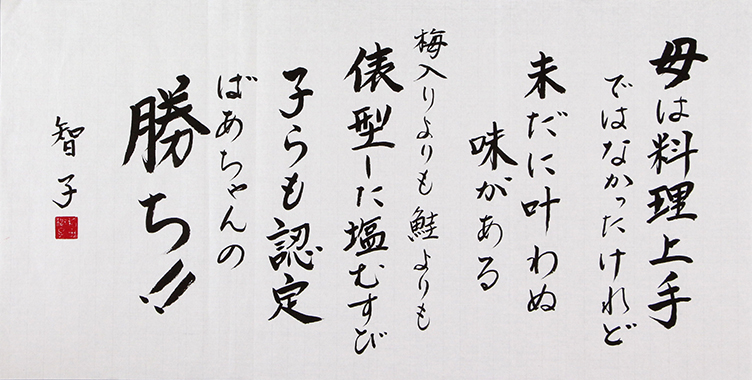 母は料理上手
ではなかったけれど
未だに叶わぬ
味がある
梅入りよりも鮭よりも
俵型した塩むすび
子らも認定
ばあちゃんの
勝ち!!
智子